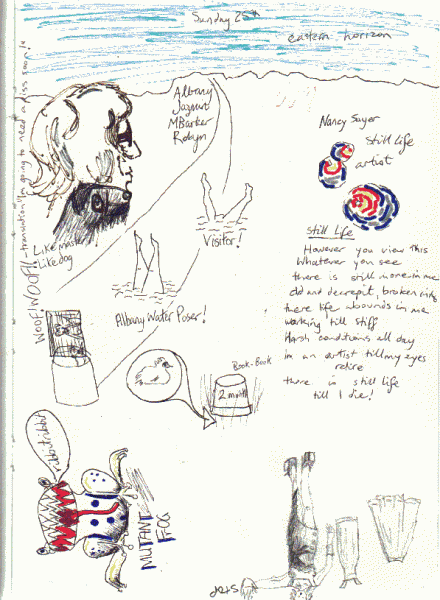 Sunday 25th
eastern horizon
WOOF! WOOF! - translation "I'm going to need a piss soon!"
Albany
Jazmut
MBarker
Robyn
Nancy Sayer
Still Life
artist
Like master,
Like dog
Visitor!
Albany Water Poser!
Still Life
However you view this
Whatever you see
there is still more in me
old and decrepit, broken
there life abounds in me
working till stiff
Harsh conditions all day
im an artist till my eyes
retire
there is still life
till I die!
Book-Book
2 month
ribbit ribbit
MUTANT
FOG